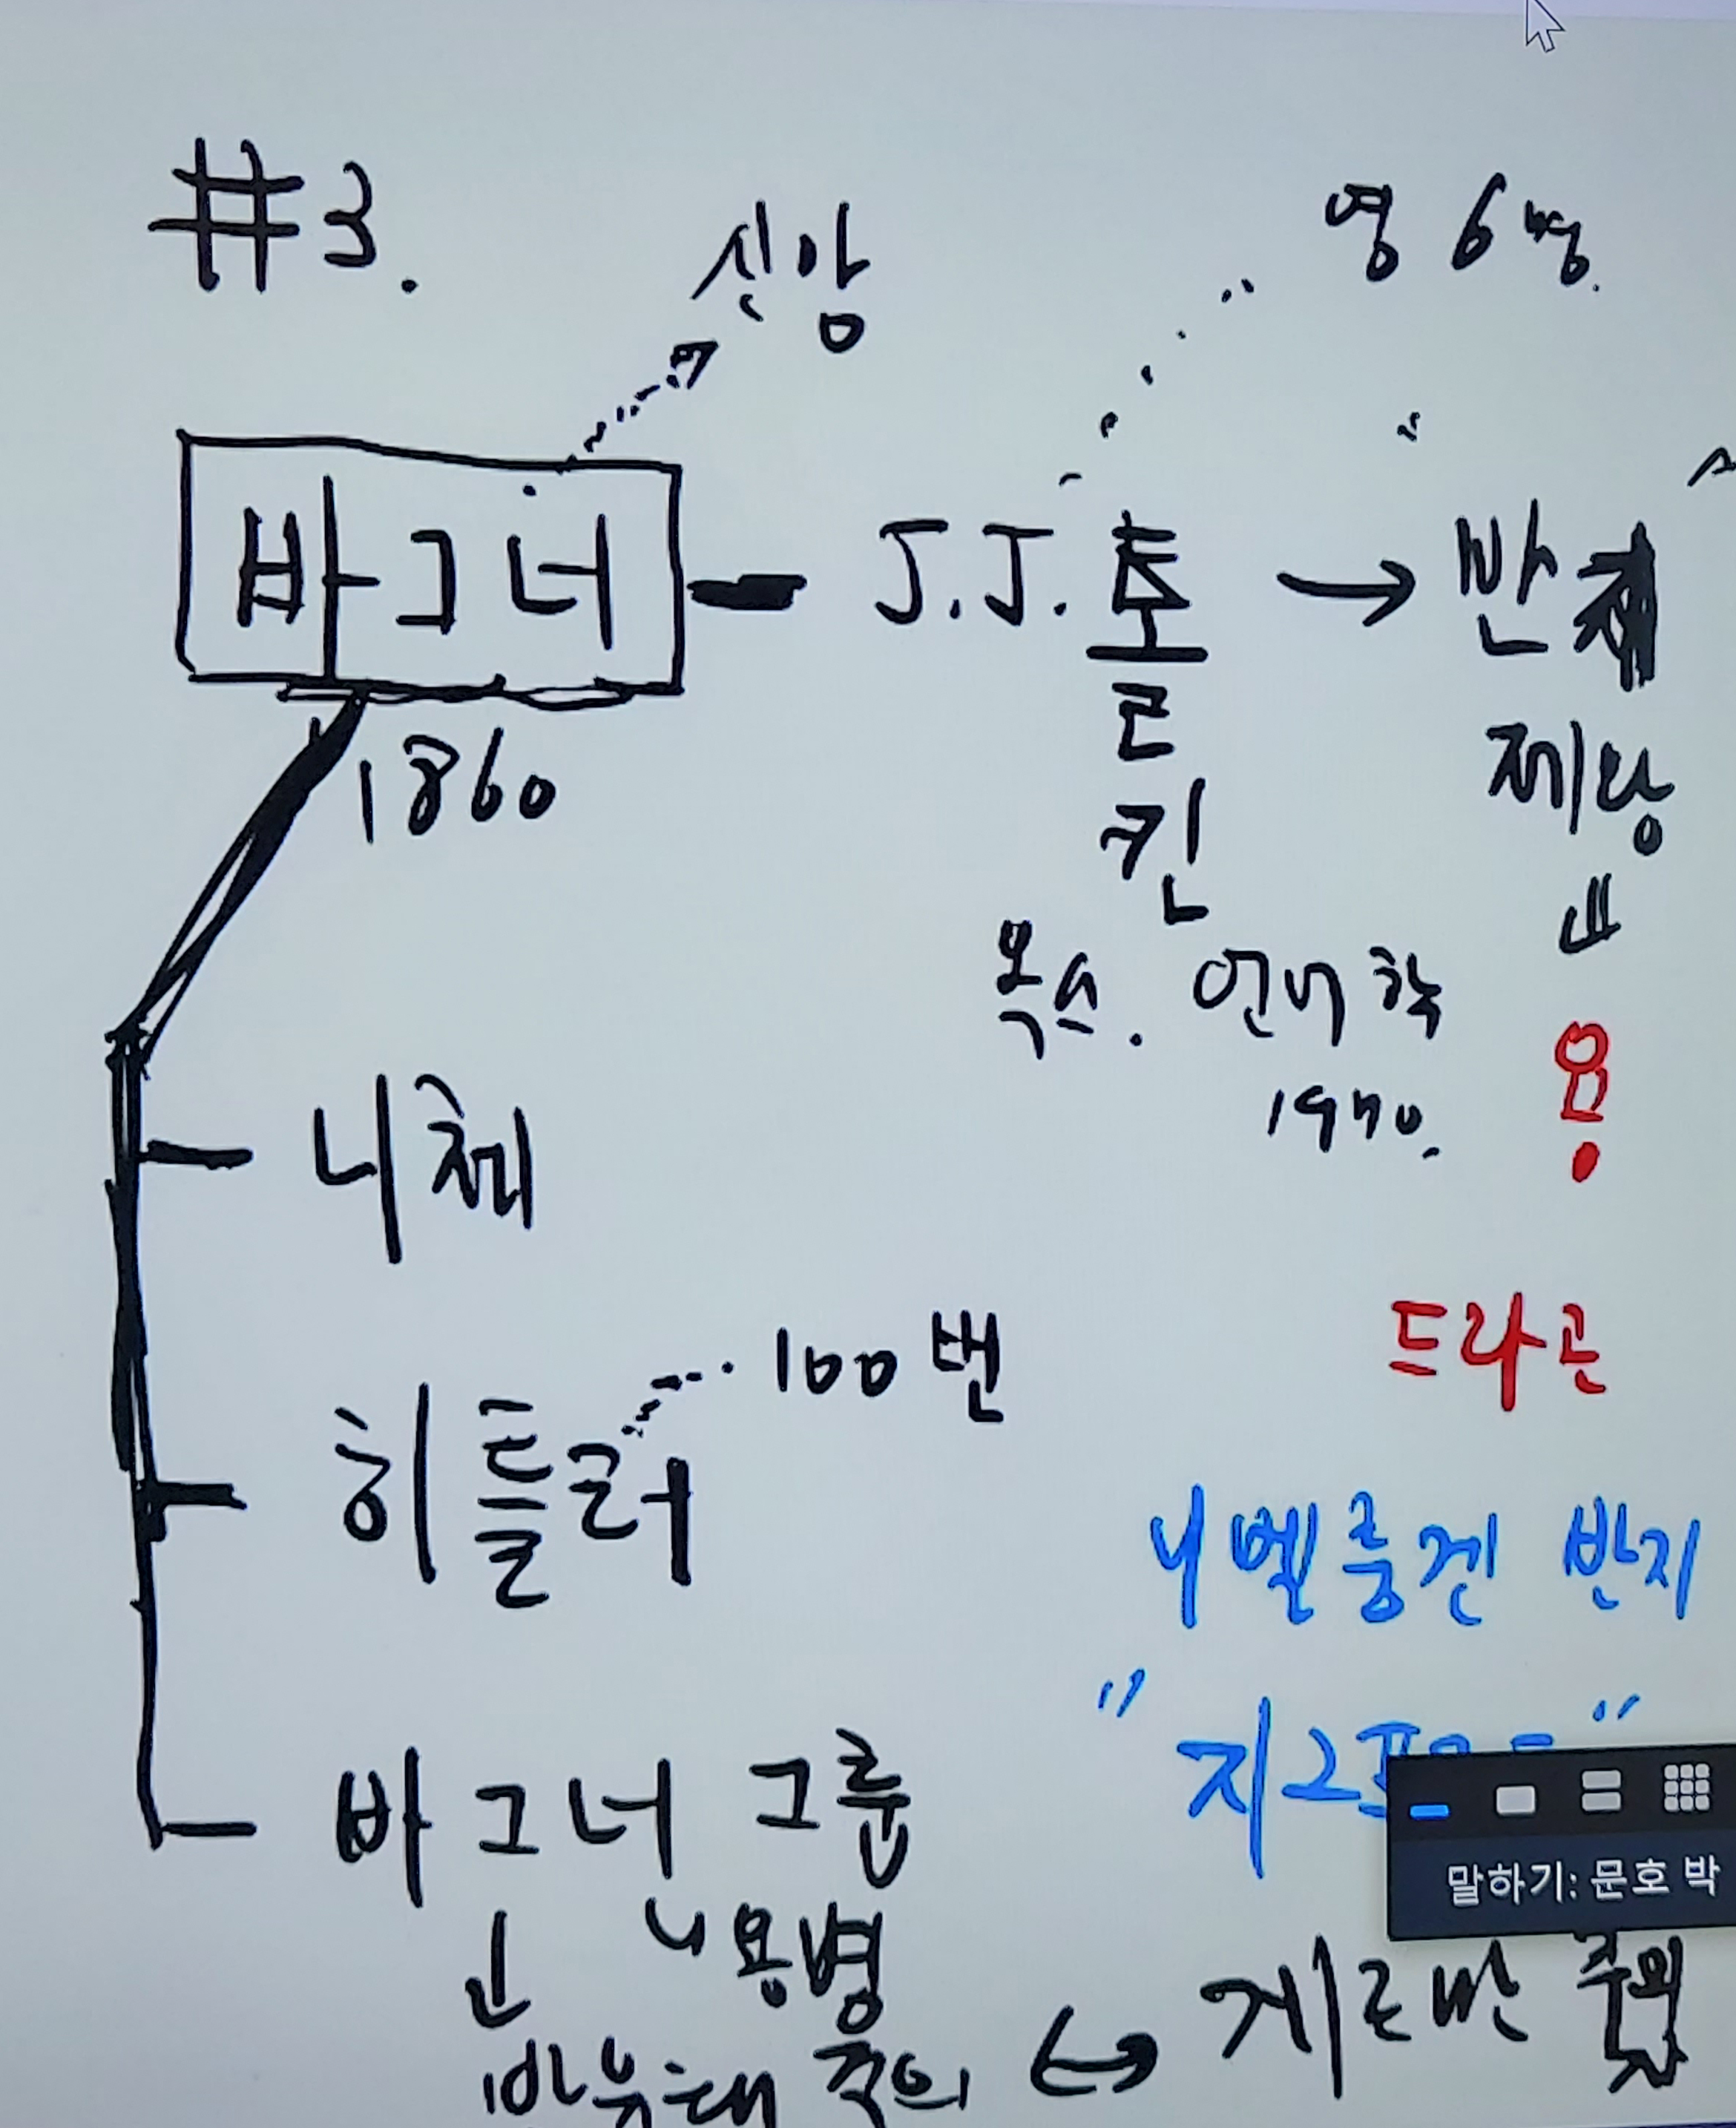 #3.
신앙
영 6명.
바그너 - J.J. 톨킨 → 반지
1860
제왕
옥스. 언어학
1970.
용
니체
드라곤
히틀러 100번
니벨룽겐 반지
바그너 그룹
말하기: 문호 박
용병
반유대주의 ↔ 게르만